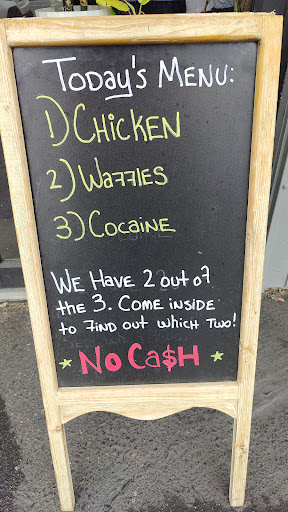 Today's Menu:
1) Chicken
2) Waffles
3) Cocaine
We Have 2 out of
the 3. Come inside
to find out which two!
No Ca$h